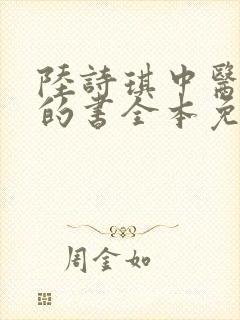 陸詩琪中醫
的書全本免
周金如